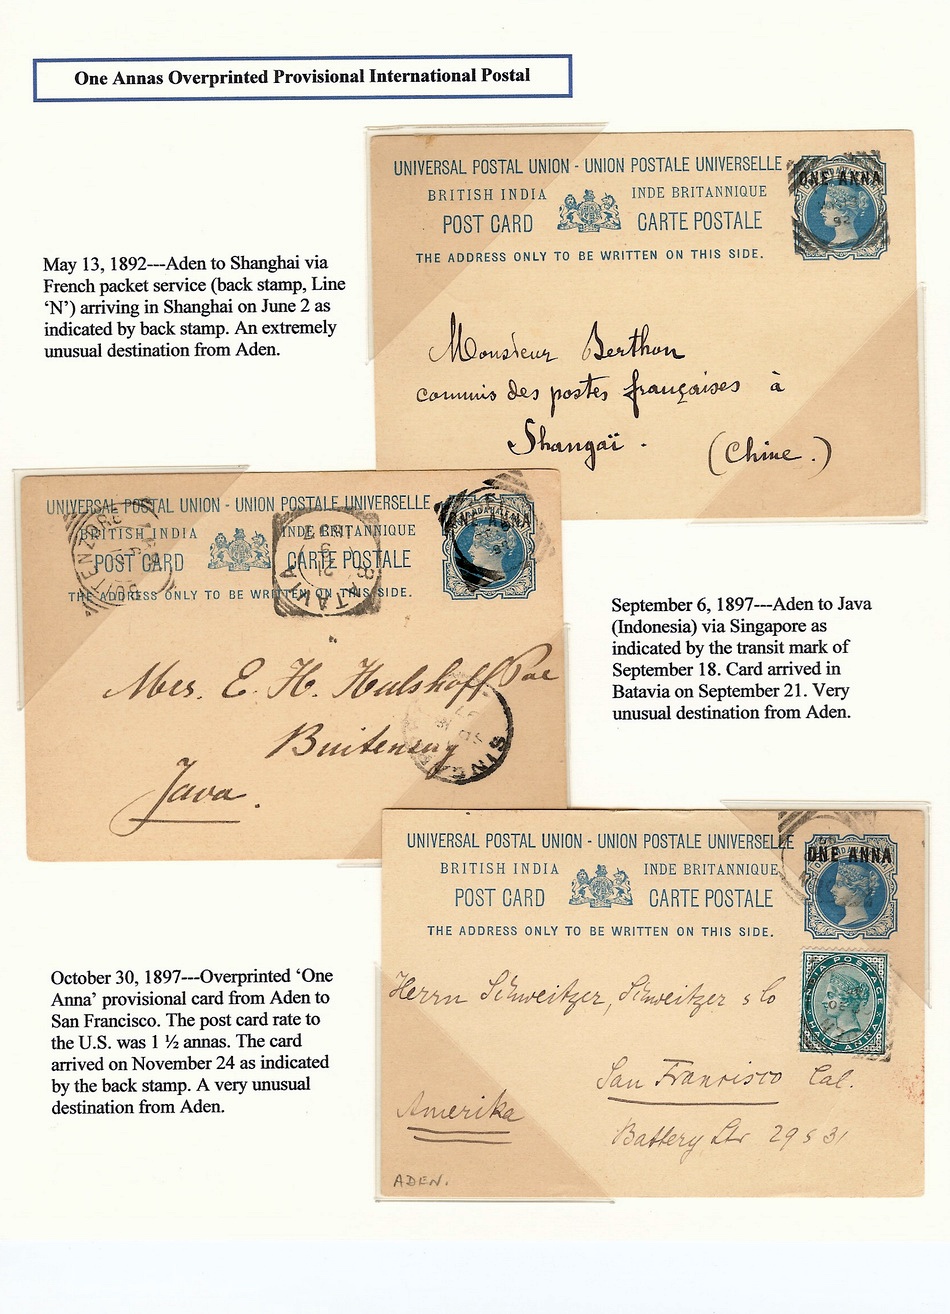 One Annas Overprinted Provisional International Postal
UNIVERSAL POSTAL UNION - UNION POSTALE UNIVERSELLE
BRITISH INDIA INDE BRITANNIQUE
POST CARD CARTE POSTALE
THE ADDRESS ONLY TO BE WRITTEN ON THIS SIDE.
ONE ANNA
92
May 13, 1892---Aden to Shanghai via
French packet service (back stamp, Line
‘N’) arriving in Shanghai on June 2 as
indicated by back stamp. An extremely
unusual destination from Aden.
Monsieur Berthon
commis des postes françaises à
Shangaï.
(Chine.)
UNIVERSAL POSTAL UNION - UNION POSTALE UNIVERSELLE
BRITISH INDIA INDE BRITANNIQUE
POST CARD CARTE POSTALE
THE ADDRESS ONLY TO BE WRITTEN ON THIS SIDE.
ONE ANNA
BATAVIA
Mrs. E. H. Hulshoff Pol
Buitenzorg
Java.
September 6, 1897---Aden to Java
(Indonesia) via Singapore as
indicated by the transit mark of
September 18. Card arrived in
Batavia on September 21. Very
unusual destination from Aden.
UNIVERSAL POSTAL UNION - UNION POSTALE UNIVERSELLE
BRITISH INDIA INDE BRITANNIQUE
POST CARD CARTE POSTALE
THE ADDRESS ONLY TO BE WRITTEN ON THIS SIDE.
ONE ANNA
INDIA POSTAGE
HALF ANNA
October 30, 1897---Overprinted ‘One
Anna’ provisional card from Aden to
San Francisco. The post card rate to
the U.S. was 1 ½ annas. The card
arrived on November 24 as indicated
by the back stamp. A very unusual
destination from Aden.
Herrn Schweitzer, Schweitzer & Co
San Francisco Cal.
Amerika
Battery Str 29 & 31
ADEN.